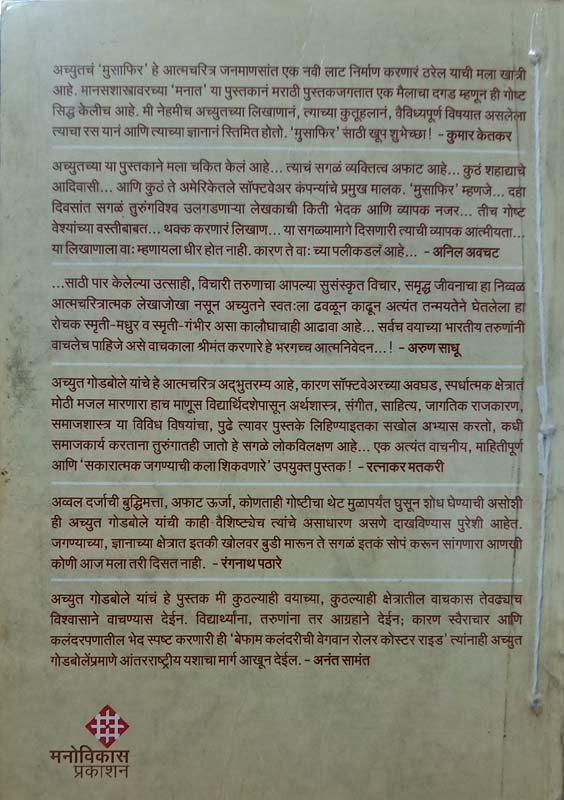 अच्युतचं ‘मुसाफिर’ हे आत्मचरित्र जनमाणसांत एक नवी लाट निर्माण करणारं ठरेल याची मला खात्री
आहे. मानसशास्त्रावरच्या ‘मनात’ या पुस्तकानं मराठी पुस्तकजगतात एक मैलाचा दगड म्हणून ही गोष्ट
सिद्ध केलीच आहे. मी नेहमीच अच्युतच्या लिखाणानं, त्याच्या कुतूहलानं, वैविध्यपूर्ण विषयात असलेला
त्याचा रस यानं आणि त्याच्या ज्ञानानं स्तिमित होतो. ‘मुसाफिर’ साठी खूप शुभेच्छा! - कुमार केतकर
अच्युतच्या या पुस्तकाने मला चकित केलं आहे... त्याचं सगळं व्यक्तित्व अफाट आहे... कुठं शहाद्याचे
आदिवासी... आणि कुठं ते अमेरिकेतले सॉफ्टवेअर कंपन्यांचे प्रमुख मालक. ‘मुसाफिर’ म्हणजे... दहा
दिवसांत सगळं तुरुंगविश्व उलगडणाऱ्या लेखकाची किती भेदक आणि व्यापक नजर... तीच गोष्ट
वेश्यांच्या वस्तीबाबत... थक्क करणारं लिखाण... या सगळ्यामागे दिसणारी त्याची व्यापक आत्मीयता...
या लिखाणाला वाः म्हणायला धीर होत नाही. कारण ते वाः च्या पलीकडलं आहे... - अनिल अवचट
...साठी पार केलेल्या उत्साही, विचारी तरुणाचा आपल्या सुसंस्कृत विचार, समृद्ध जीवनाचा हा निव्वळ
आत्मचरित्रात्मक लेखाजोखा नसून अच्युतने स्वतःला ढवळून काढून अत्यंत तन्मयतेने घेतलेला हा
रोचक स्मृती-मधुर व स्मृती-गंभीर असा कालौघाचाही आढावा आहे... सर्वच वयाच्या भारतीय तरुणांनी
वाचलेच पाहिजे असे वाचकाला श्रीमंत करणारे हे भरगच्च आत्मनिवेदन...! - अरुण साधू
अच्युत गोडबोले यांचे हे आत्मचरित्र अद्‍भुतरम्य आहे, कारण सॉफ्टवेअरच्या अवघड, स्पर्धात्मक क्षेत्रात
मोठी मजल मारणारा हाच माणूस विद्यार्थिदशेपासून अर्थशास्त्र, संगीत, साहित्य, जागतिक राजकारण,
समाजशास्त्र या विविध विषयांचा, पुढे त्यावर पुस्तके लिहिण्याइतका सखोल अभ्यास करतो, कधी
समाजकार्य करताना तुरुंगातही जातो हे सगळे लोकविलक्षण आहे... एक अत्यंत वाचनीय, माहितीपूर्ण
आणि ‘सकारात्मक जगण्याची कला शिकवणारे’ उपयुक्त पुस्तक! - रत्नाकर मतकरी
अव्वल दर्जाची बुद्धिमत्ता, अफाट ऊर्जा, कोणताही गोष्टीचा थेट मुळापर्यंत घुसून शोध घेण्याची असोशी
ही अच्युत गोडबोले यांची काही वैशिष्ट्येच त्यांचे असाधारण असणे दाखविण्यास पुरेशी आहेत.
जगण्याच्या, ज्ञानाच्या क्षेत्रात इतकी खोलवर बुडी मारून ते सगळं इतकं सोपं करून सांगणारा आणखी
कोणी आज मला तरी दिसत नाही. - रंगनाथ पठारे
अच्युत गोडबोले यांचं हे पुस्तक मी कुठल्याही वयाच्या, कुठल्याही क्षेत्रातील वाचकास तेवढ्याच
विश्वासाने वाचण्यास देईन. विद्यार्थ्यांना, तरुणांना तर आग्रहाने देईन; कारण स्वैराचार आणि
कलंदरपणातील भेद स्पष्ट करणारी ही ‘बेफाम कलंदरीची वेगवान रोलर कोस्टर राइड’ त्यांनाही अच्युत
गोडबोलेंप्रमाणे आंतरराष्ट्रीय यशाचा मार्ग आखून देईल. - अनंत सामंत
मनोविकास
प्रकाशन